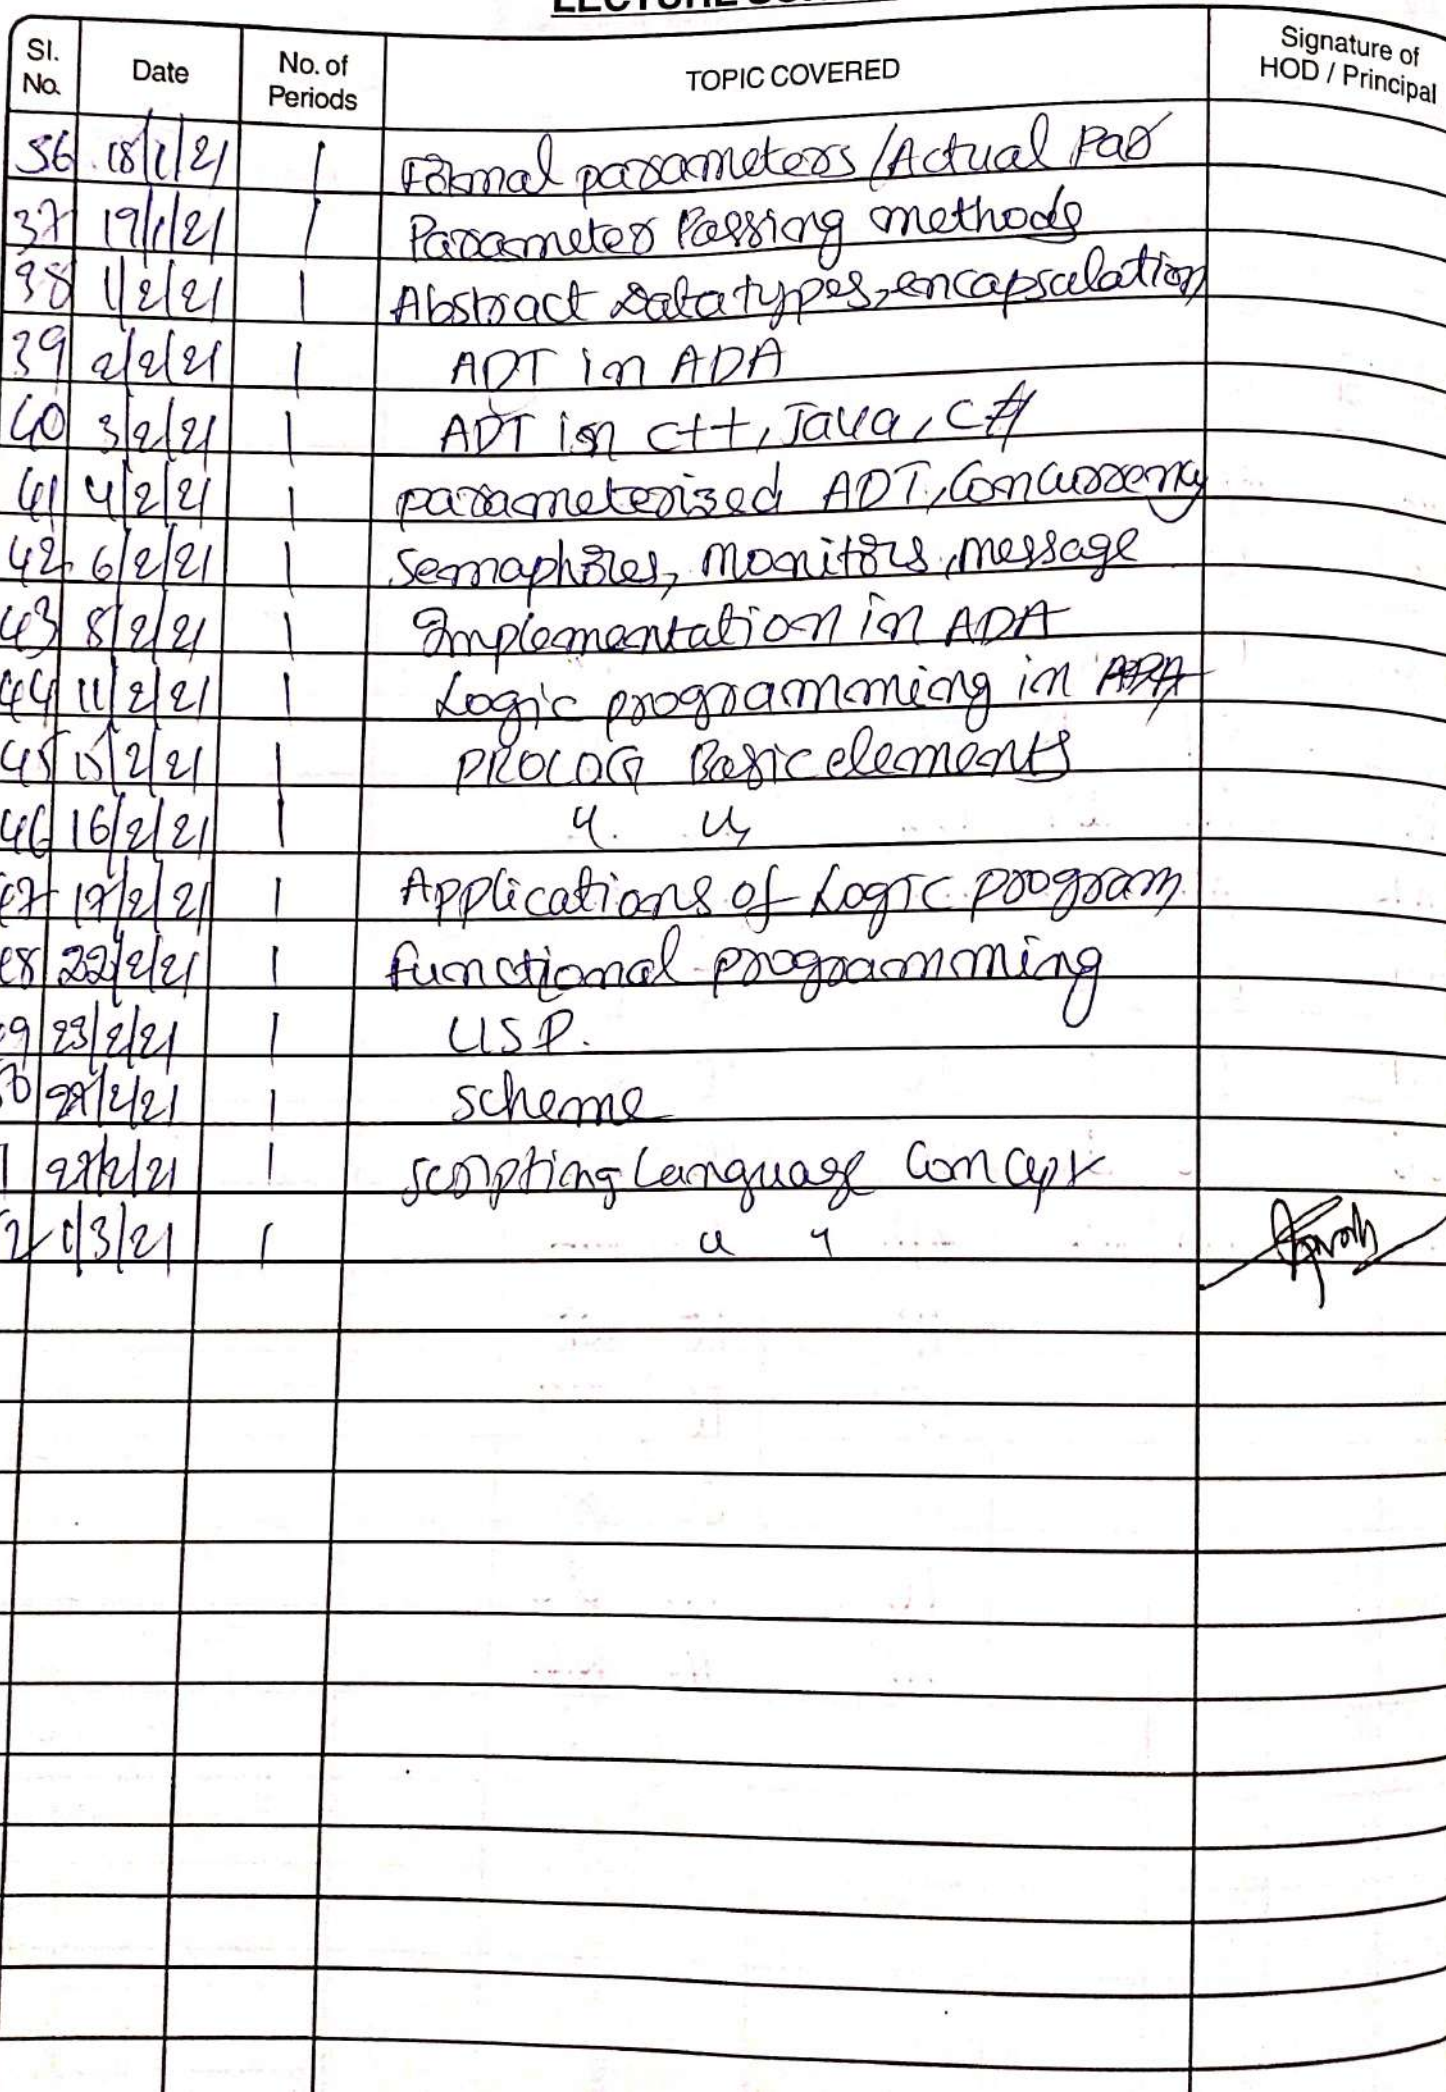 LECTURE
Sl. No. Date No. of Periods TOPIC COVERED Signature of HOD / Principal
36 18/1/21 1 Formal parameters /Actual Par
37 19/1/21 1 Parameter Passing methods
38 1/2/21 1 Abstract Data types, encapsulation
39 2/2/21 1 ADT in ADA
40 3/2/21 1 ADT in C++, Java, C#
41 4/2/21 1 parameterized ADT, Concurrency
42 6/2/21 1 Semaphores, Monitors, message
43 8/2/21 1 Implementation in ADA
44 11/2/21 1 Logic programming in
45 15/2/21 1 PROLOG Basic elements
46 16/2/21 1 " "
47 17/2/21 1 Applications of Logic program
48 22/2/21 1 functional programming
9 23/2/21 1 LISP.
0 /2/21 1 scheme
1 27/2/21 1 scripting Language Concept
2 1/3/21 1 " "